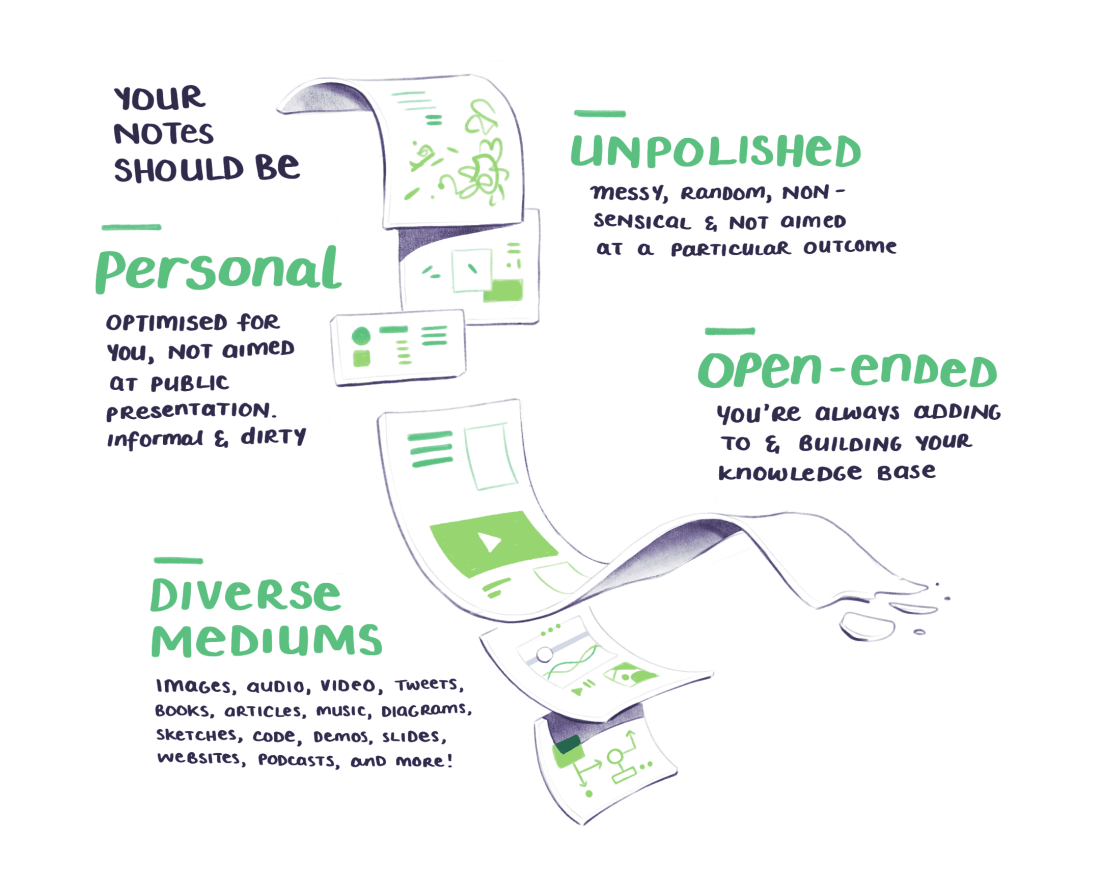 YOUR
NOTES
SHOULD BE
Personal
OPTIMISED FOR
YOU, NOT AIMED
AT PUBLIC
PRESENTATION.
Informal & DIRTY
UNPOLISHED
MESSY, RANDOM, NON-
SENSICAL & NOT AIMED
AT A PARTICULAR OUTCOME
OPEN-ENDED
YOU'RE ALWAYS ADDING
TO & BUILDING YOUR
KNOWLEDGE BASE
DIVERSE
MEDIUMS
IMAGES, AUDIO, VIDEO, TWEETS,
BOOKS, ARTICLES, MUSIC, DIAGRAMS,
SKETCHES, CODE, DEMOS, SLIDES,
WEBSITES, PODCASTS, AND MORE!